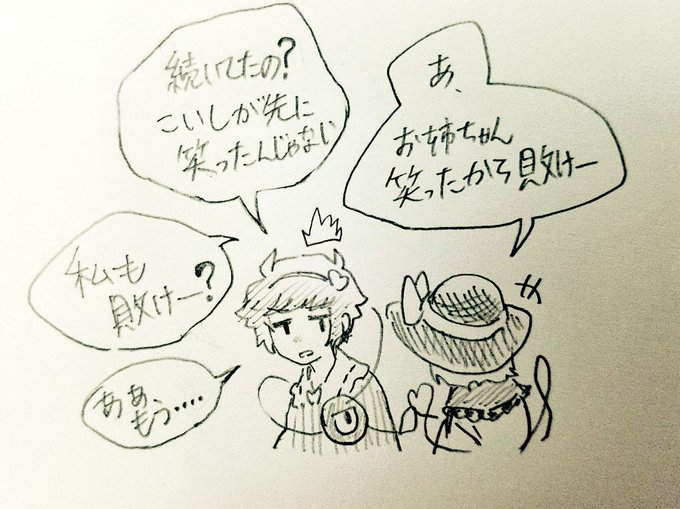 あ、
お姉ちゃん
笑ったから敗けー
続いてたの?
こいしが先に
笑ったんじゃない
私も
敗けー?
ああ
もう‥‥